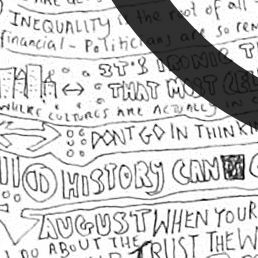 INEQUALITY is the root of all
financial - Politicians are so
IT'S IRONIC
THAT MOST CEL
CULTURES ARE ACTUALLY IN
DON'T GO IN THINKIN
HISTORY CAN
AUGUST WHEN YOUR
DO ABOUT THE TRUST THE W